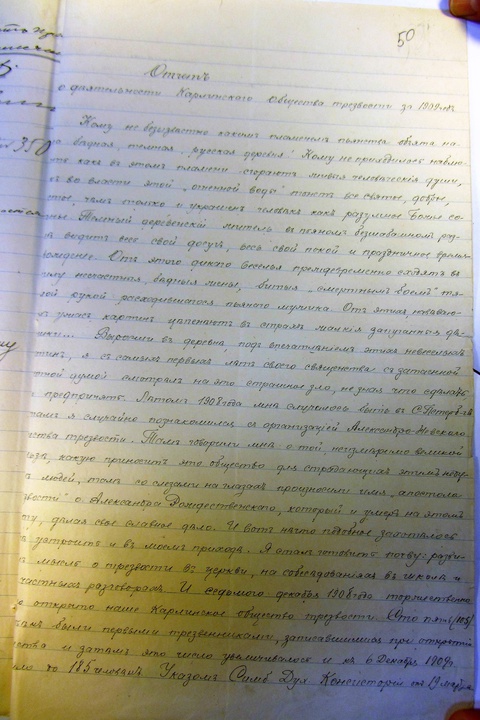 50
Отчетъ
о деятельности Карлинскаго Общества трезвости за 1909 г.
Кому не безызвестно какимъ пламенемъ пьянства объята на-
ша бедная, темная, русская деревня! Кому не приходилось наблю-
какъ въ этомъ пламени сгораютъ живыя человеческія души,
во власти этой „огненной воды" тонетъ все святое, доброе,
чемъ только и украшенъ человекъ какъ разумное Божіе со-
Темный деревенскій житель въ пьяномъ безшабашномъ раз-
видитъ весь свой досугъ, весь свой покой и праздничное время-
вожденіе. Отъ этого дикаго веселья преждевременно сходятъ въ
могилу несчастныя, бедныя жены, битыя „смертнымъ боемъ" тя-
рукой расходившагося пьянаго мужика. Отъ этихъ кошмаро-
ужасъ картинъ цепенеютъ въ страхе малыя запуганныя де-
тишки... Выросши въ деревне, подъ впечатленіемъ этихъ невеселыхъ
картинъ, я съ самыхъ первыхъ летъ своего священства съ затаенной
думой смотрелъ на это страшное зло, не зная что сделать
предпринять. Летомъ 1908 года мне случилось быть въ С.-Петерб-ге
тамъ я случайно познакомился съ организаціей Александро-Невскаго
общества трезвости. Тамъ говорили мне о той неизмеримо великой
пользе, какую приноситъ это общество для страдающихъ этимъ неду-
людей, тамъ со слезами на глазахъ произносили имя „апостола
трезвости" о. Александра Рождественскаго, который и умеръ на этомъ
посту, делая свое славное дело. И вотъ нечто подобное захотелось
устроить и въ моемъ приходе. Я сталъ готовить почву: разви-
мысль о трезвости въ церкви, на собеседованіяхъ въ школе и
частныхъ разговорахъ. И седьмого декабря 1908 года торжественно
открыто наше Карлинское общество трезвости. Сто пять /105/
были первыми трезвенниками, записавшимися при открытіи
общества и затемъ это число увеличивалось и къ 6 Декабря 1909 г.
до 185 человекъ. Указомъ Симб. Дух. Консисторіи отъ 19 марта
350